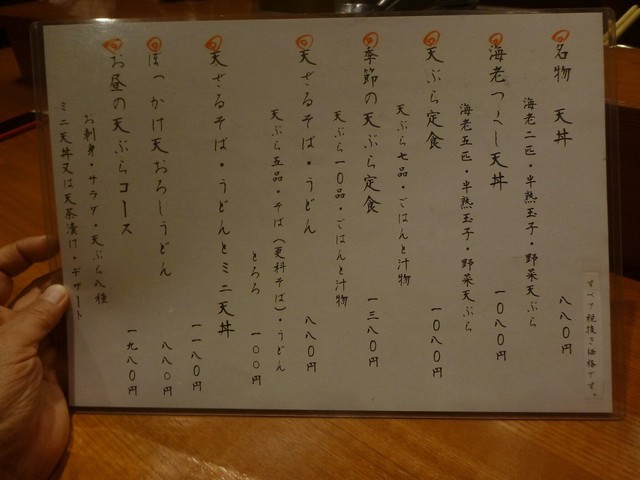 名物 天丼
海老二匹・半熟玉子・野菜天ぷら
八八〇円
海老つくし天丼
海老五匹・半熟玉子・野菜天ぷら
一〇八〇円
天ぷら定食
天ぷら七品・ごはんと汁物
一〇八〇円
季節の天ぷら定食
天ぷら一〇品・ごはんと汁物
一三八〇円
天ざるそば・うどん
天ぷら五品・そば(更科そば)・うどん
八八〇円
とろろ
一〇〇円
天ざるそば・うどんとミニ天丼
一一八〇円
ぶっかけ天おろしうどん
八八〇円
お昼の天ぷらコース
お刺身・サラダ・天ぷら八種
ミニ天丼又は天茶漬け・デザート
一九八〇円
すべて税抜き価格です。